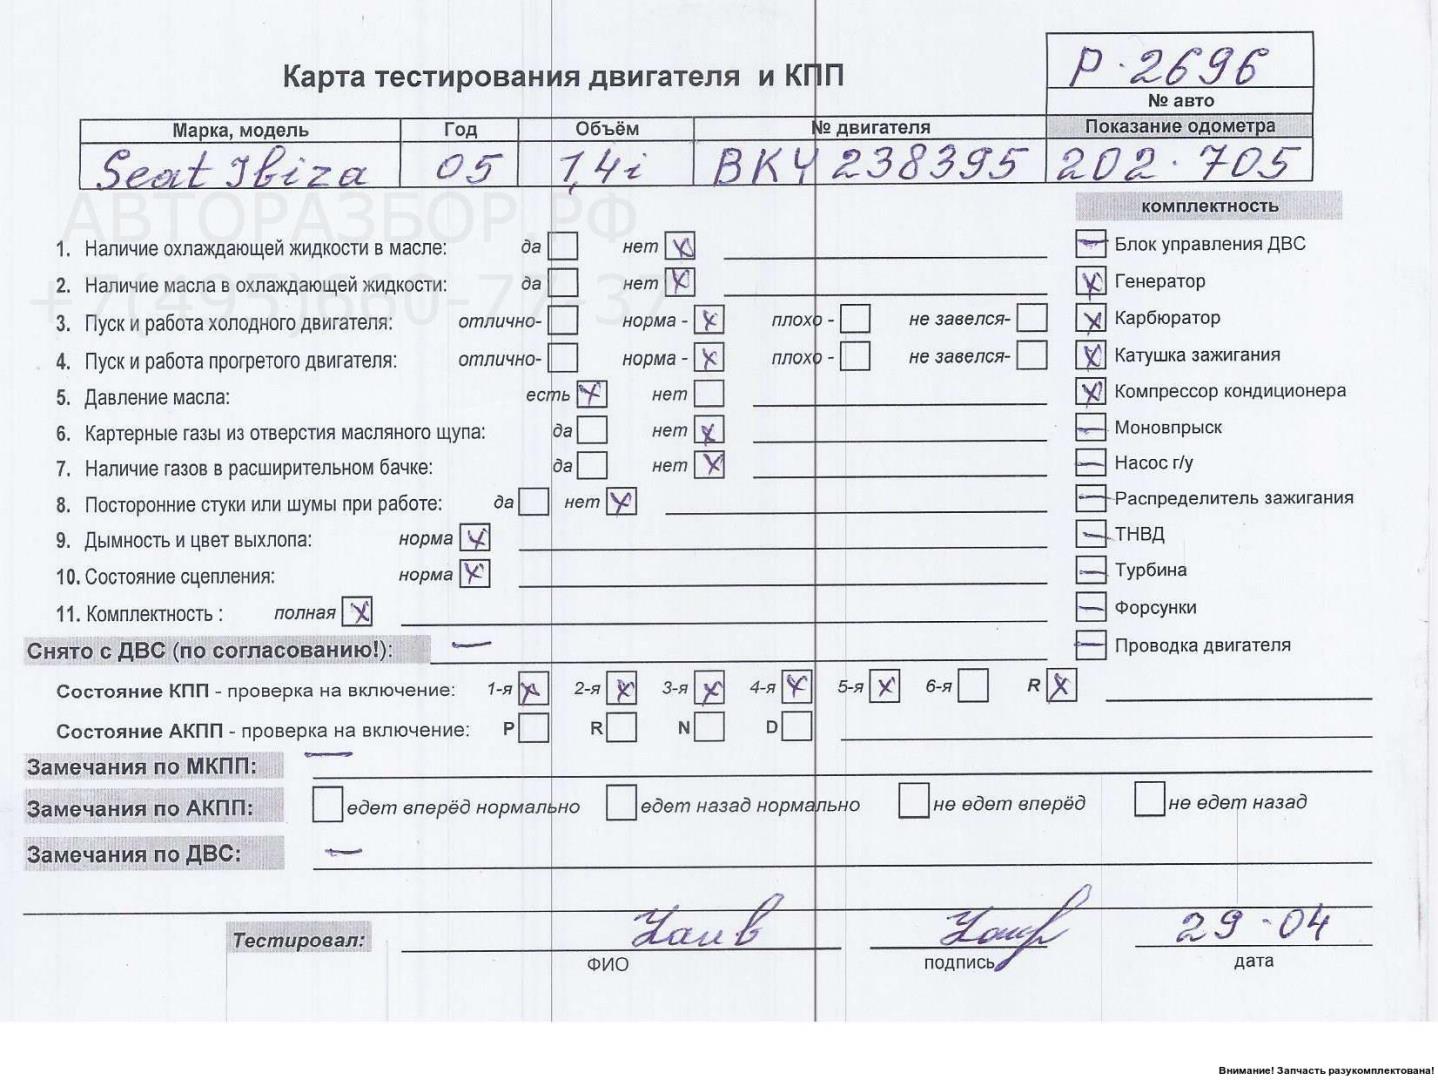 Карта тестирования двигателя и КПП
P·2696
№ авто
Марка, модель Год Объём № двигателя Показание одометра
Seat Ibiza 05 1,4i BKY 238395 202·705
АВТОРАЗБОР.РФ
комплектность
1. Наличие охлаждающей жидкости в масле: да нет Блок управления ДВС
2. Наличие масла в охлаждающей жидкости: да нет Генератор
+7(495)660-77-37
3. Пуск и работа холодного двигателя: отлично- норма - плохо - не завелся- Карбюратор
4. Пуск и работа прогретого двигателя: отлично- норма - плохо - не завелся- Катушка зажигания
5. Давление масла: есть нет Компрессор кондиционера
6. Картерные газы из отверстия масляного щупа: да нет Моновпрыск
7. Наличие газов в расширительном бачке: да нет Насос г/у
8. Посторонние стуки или шумы при работе: да нет Распределитель зажигания
9. Дымность и цвет выхлопа: норма ТНВД
10. Состояние сцепления: норма Турбина
11. Комплектность : полная Форсунки
Снято с ДВС (по согласованию!): — Проводка двигателя
Состояние КПП - проверка на включение: 1-я 2-я 3-я 4-я 5-я 6-я R
Состояние АКПП - проверка на включение: P R N D
Замечания по МКПП: —
Замечания по АКПП: едет вперёд нормально едет назад нормально не едет вперёд не едет назад
Замечания по ДВС: —
Тестировал: 29·04
ФИО подпись дата
Внимание! Запчасть разукомплектована!